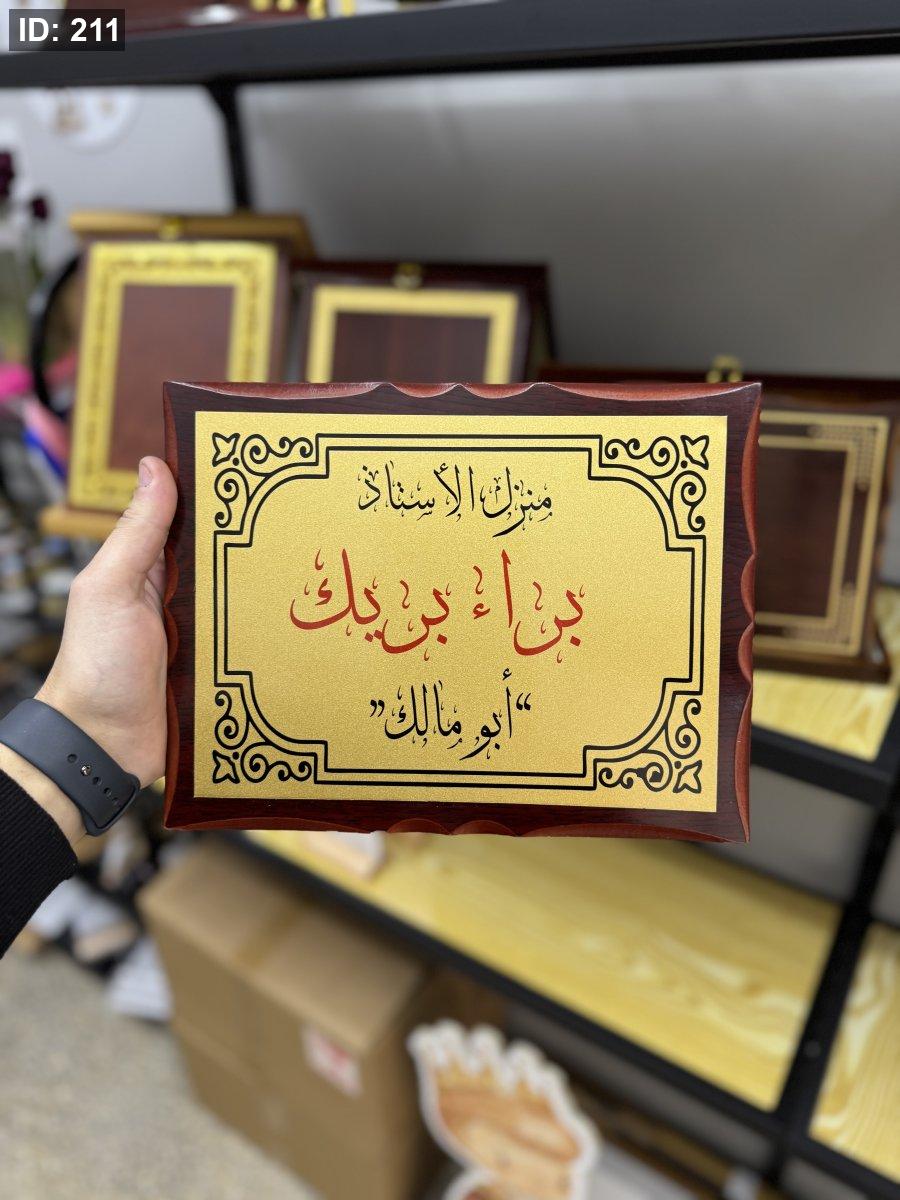 ID: 211
منزل الأستاذ
براء بريك
“أبو مالك”